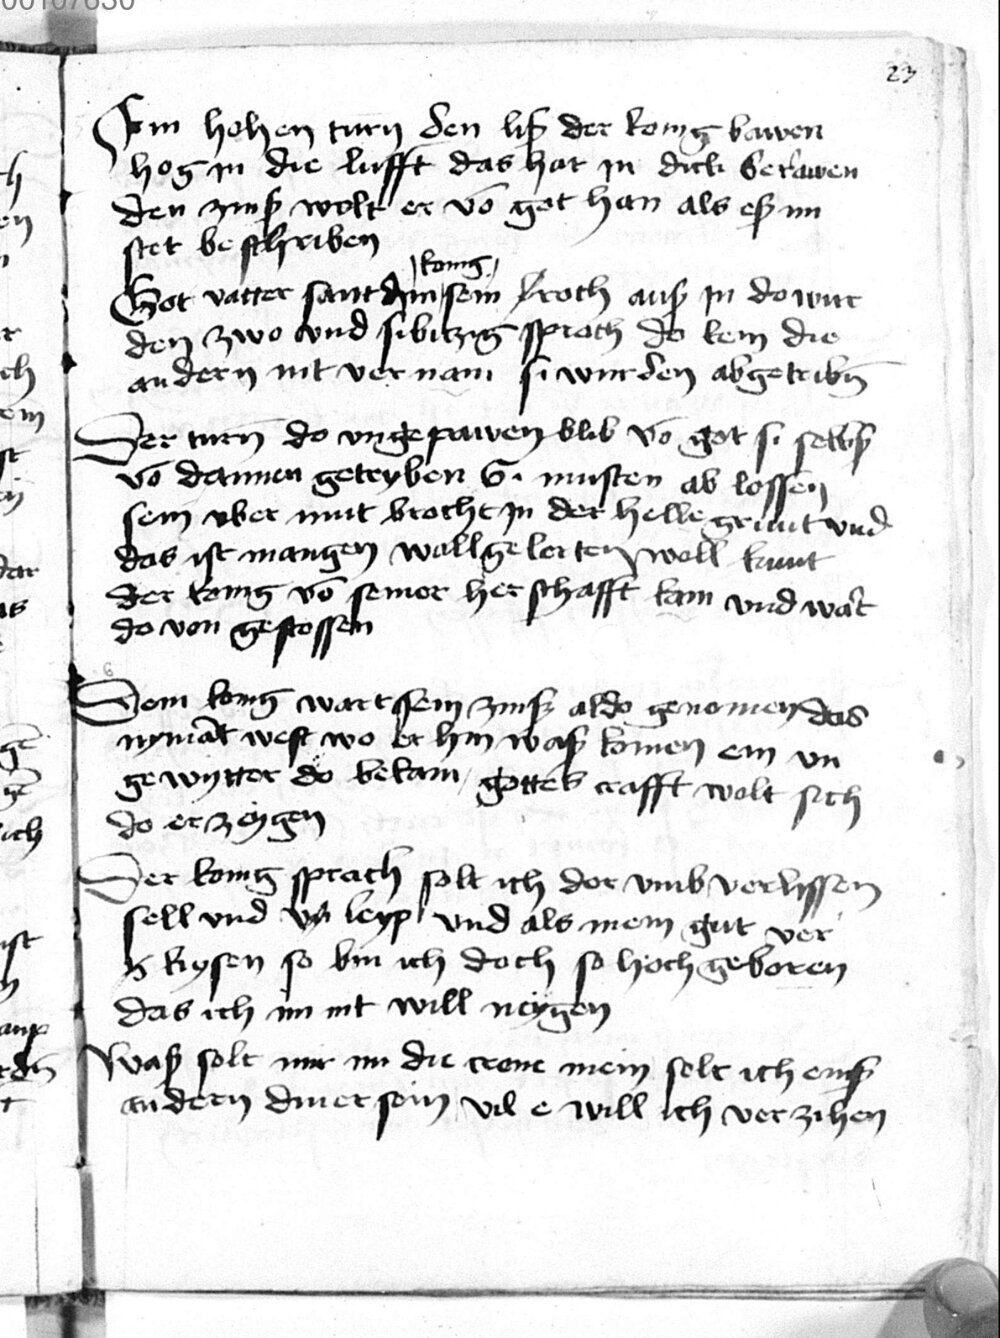 00107630
23
Ein hohen turn den liß der konig bawen
hog in die lufft das hat in dick gerawen
den zinß wolt er vō got han als eß im
stet beschriben
konig
Got vatter sant dem sein sproch auß in do wur
den zwo und sibitzig sproch do kein die
andern nit vernam si wurden abgetribn̄
Der turn do ungepawen blib vō got si selbß
vō dannen getryben Si musten ab lossen
sein uber mut brocht in der helle grunt vnd
das ist mangen wollgelerten woll kunt
der konig vō seiner herschafft kam vnd wart
do von gestossen
Dem konig wart sein zinß aldo genomen das
nymāt west wo er hin waß komen ein vn
gewytter do bekam gottes crafft wolt sich
do erzeygen
Der konig sprach solt ich dor vmb verlissen
sell vnd leyp vnd als mein gut ver
kysen so bin ich doch so hoch geboren
das ich im nit will neygen
Waß solt mir nu die crone mein solt ich einß
andern diner sein vil e will ich verzihen